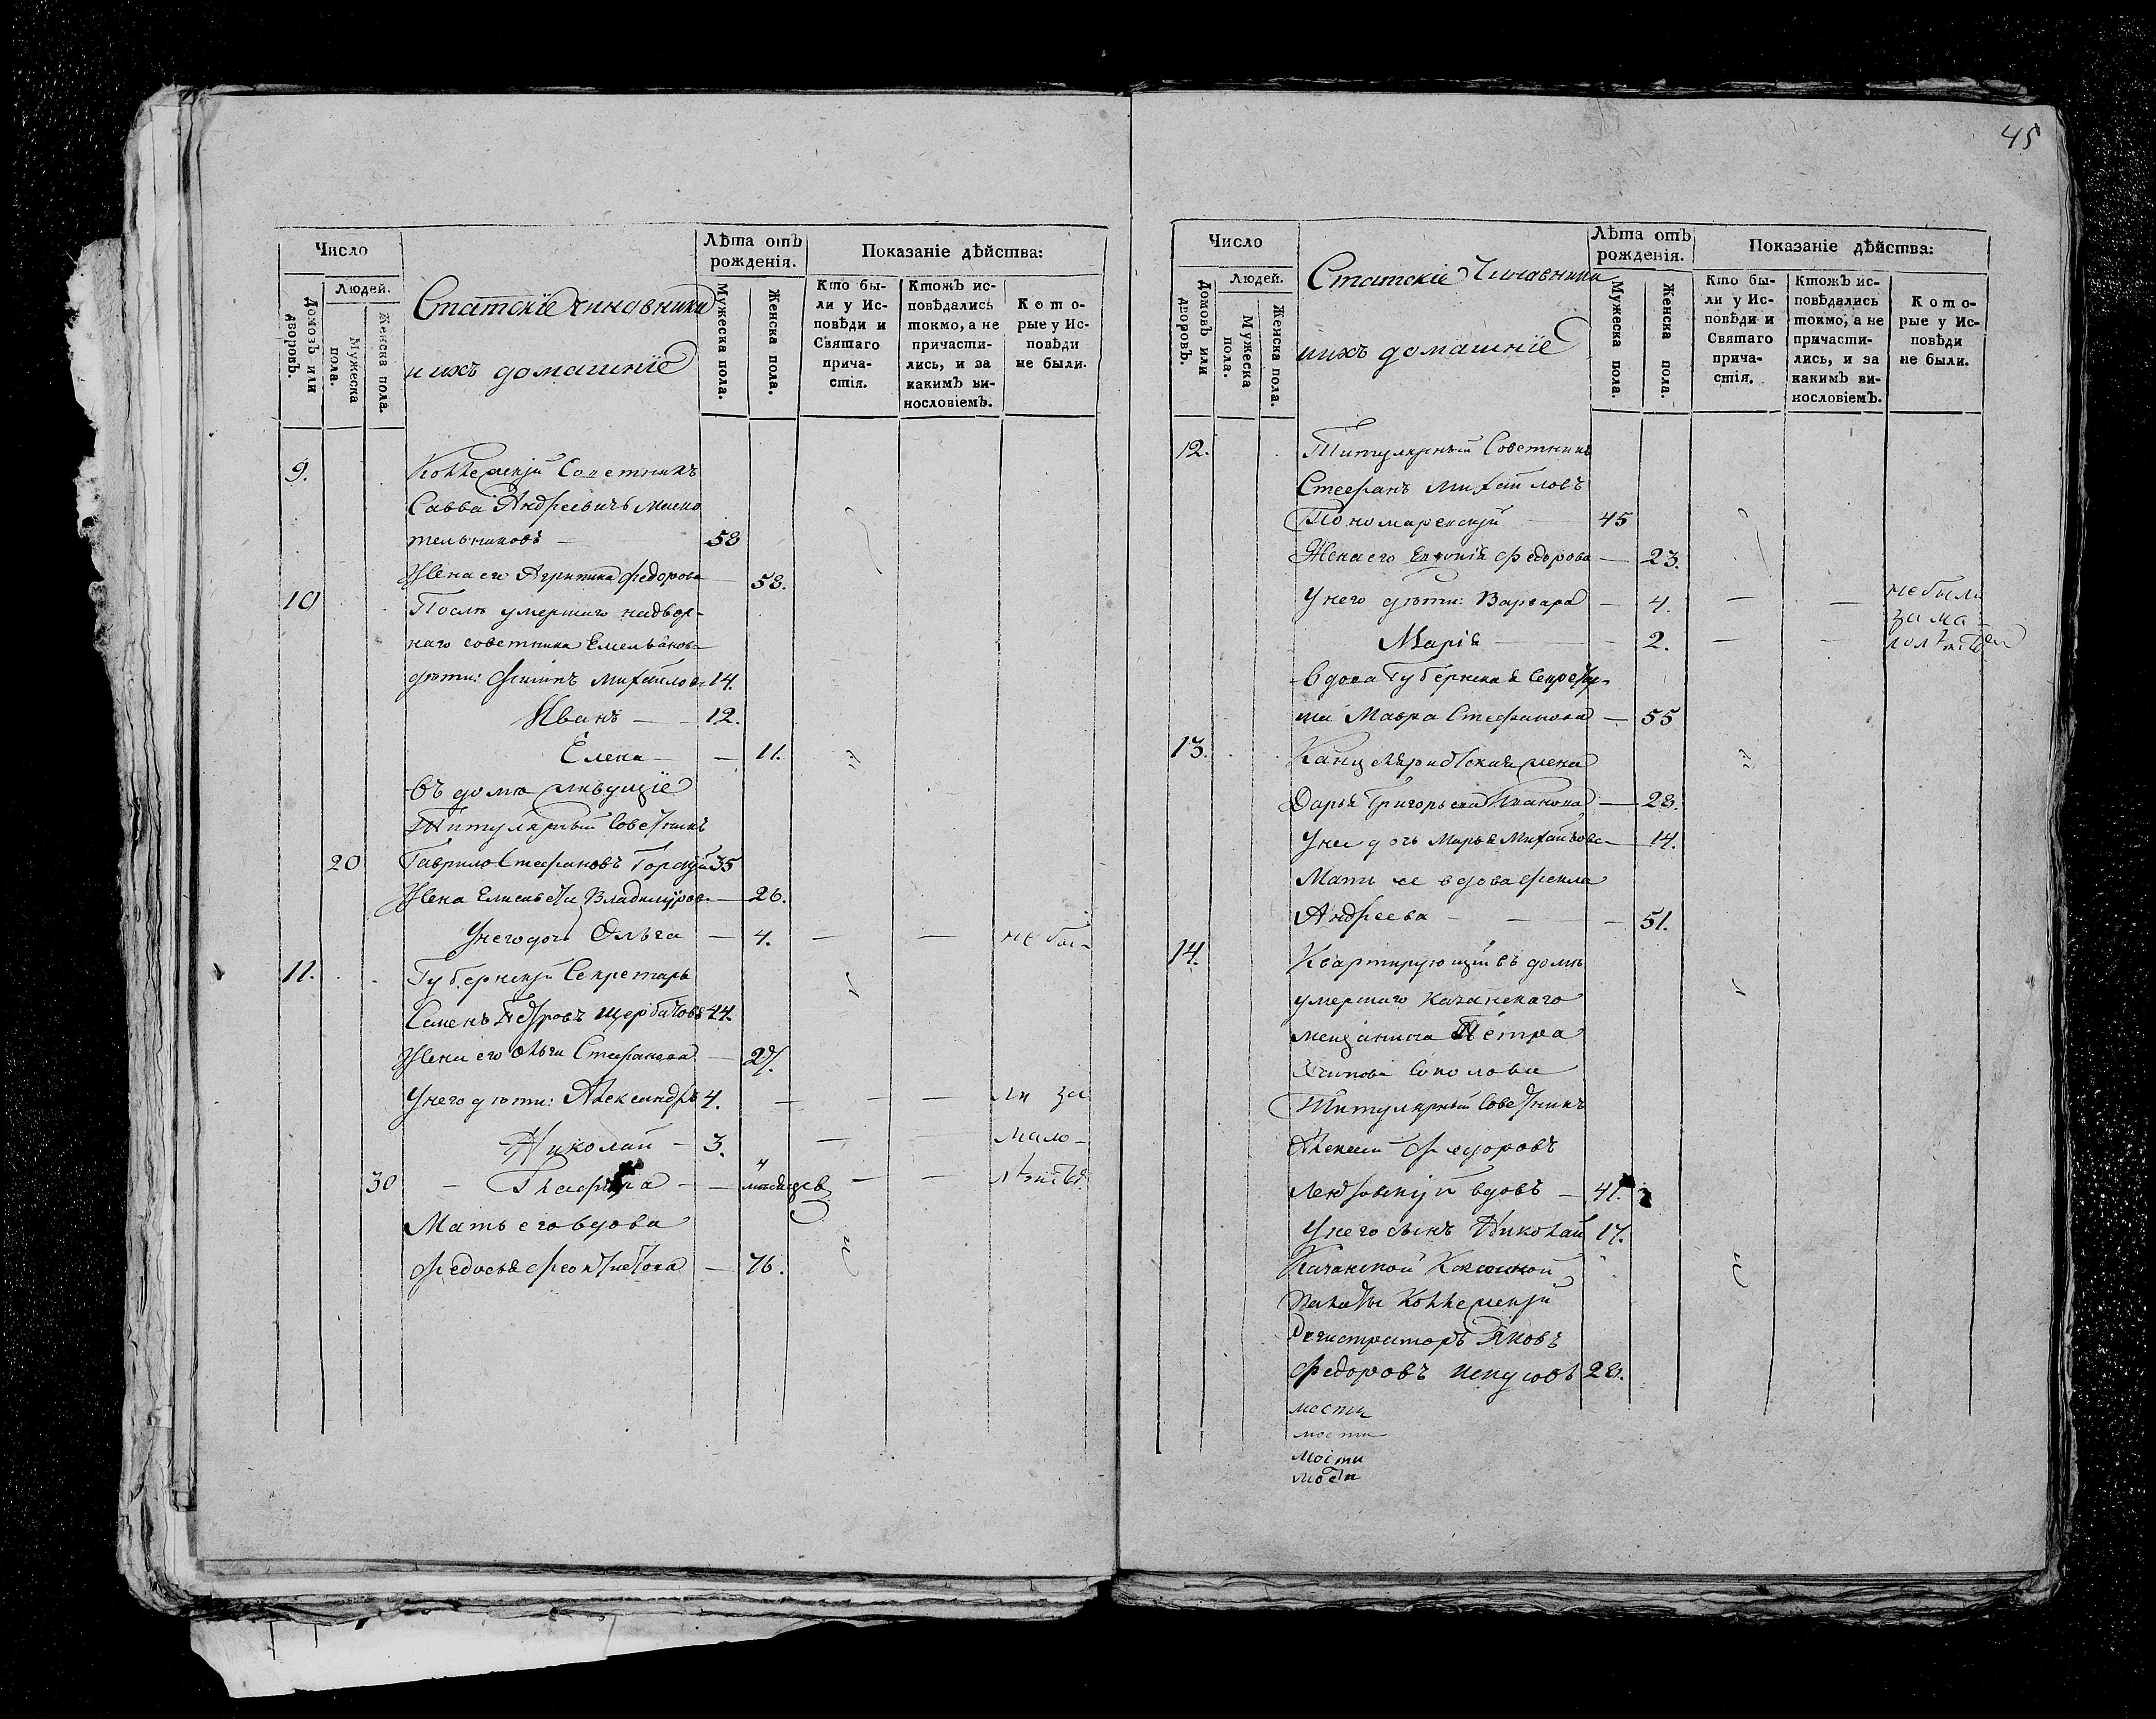 45
Число
Лѣта отъ рожденія.
Показаніе дѣйства:
Людей.
Домовъ или дворовъ.
Мужеска пола.
Женска пола.
Статскіе чиновники
и ихъ домашніе
Мужеска пола.
Женска пола.
Кто бы-
ли у Ис-
повѣди и
Святаго
прича-
стія.
Ктожъ ис-
повѣдались
токмо, а не
причасти-
лись, и за
какимъ ви-
нословіемъ.
Кото-
рые у Ис-
повѣди
не были.
9. Коллежскій Советникъ
Савва Андреевичъ Маско
тельниковъ — 58
Жена его Агрипина Федорова — 58.
10 После умершаго надвор-
наго советника Емельянова
дѣти: Филипъ Михайловъ 14.
Иванъ — 12.
Елена — — 11.
Въ доме живущіе
Титулярный Советникъ
20 Гаврило Стефановъ Горскій 35
Жена Елисавета Владимірова — 26.
У него дочь Ольга — 4. — — не бы-
11. Губернскій Секретарь
Семенъ Петровъ Щербаковъ 44.
Жена его Ольга Стефанова — 27.
У него дѣти: Александръ 4. — — — ли за
Николай — 3. — — мало-
30 — Глафира — — 4 месяцев — — лѣтств.
Мать его вдова
Федосья Феоктистова — 76.
Число
Лѣта отъ рожденія.
Показаніе дѣйства:
Людей.
Домовъ или дворовъ.
Мужеска пола.
Женска пола.
Статскіе Чиновники
и ихъ домашніе
Мужеска пола.
Женска пола.
Кто бы-
ли у Ис-
повѣди и
Святаго
прича-
стія.
Ктожъ ис-
повѣдались
токмо, а не
причасти-
лись, и за
какимъ ви-
нословіемъ.
Кото-
рые у Ис-
повѣди
не были.
12. Титулярный Советникъ
Стефанъ Михайловъ
Пономаревскій — 45
Жена его Евгенія Федорова — 23.
У него дѣти: Варвара — 4. — — не были
за ма-
Марія — 2. — — лолѣтств
Вдова Губернская Секретар-
ша Мавра Стефанова — 55
13. Канцеляристская жена
Дарья Григорьева Иванова — 28.
У нее дочь Марья Михайлова — 14.
Мать ее вдова Фекла
Андреева — — — 51.
14. Квартирующій въ доме
умершаго Казанскаго
мещанина Петра
Соколова
Титулярный Советникъ
Алексей Федоровъ
вдовъ — 41.
У него сынъ Николай 17.
Казанской Казенной
Палаты Коллежскій
Регистраторъ Яковъ
Федоровъ 28.
мости
мости
мости
мости